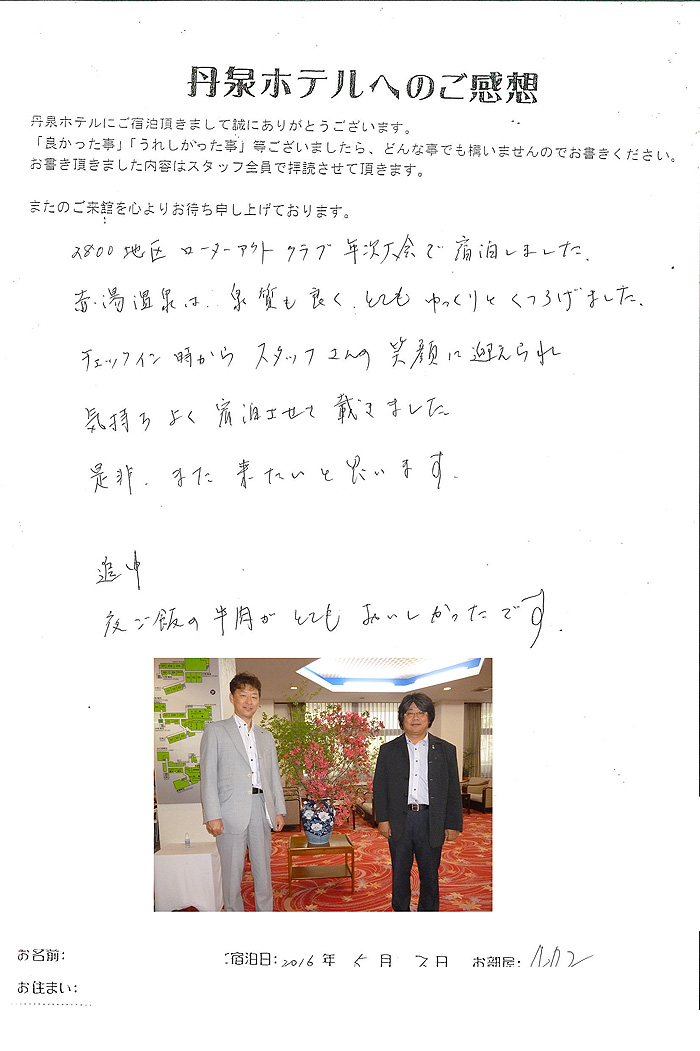 丹泉ホテルへのご感想
丹泉ホテルにご宿泊頂きまして誠にありがとうございます。
「良かった事」「うれしかった事」等ございましたら、どんな事でも構いませんのでお書きください。
お書き頂きました内容はスタッフ全員で拝読させて頂きます。
またのご来館を心よりお待ち申し上げております。
2800地区 ローターアクトクラブ 年次大会で宿泊しました。
赤湯温泉は、泉質も良く、とてもゆっくりとくつろげました。
チェックイン時からスタッフさんの笑顔に迎えられ
気持ちよく宿泊させて戴きました
是非、また来たいと思います。
追申
夜ご飯の牛肉がとてもおいしかったです。
お名前:
ご宿泊日:2016年 5月 日 お部屋:
お住まい: